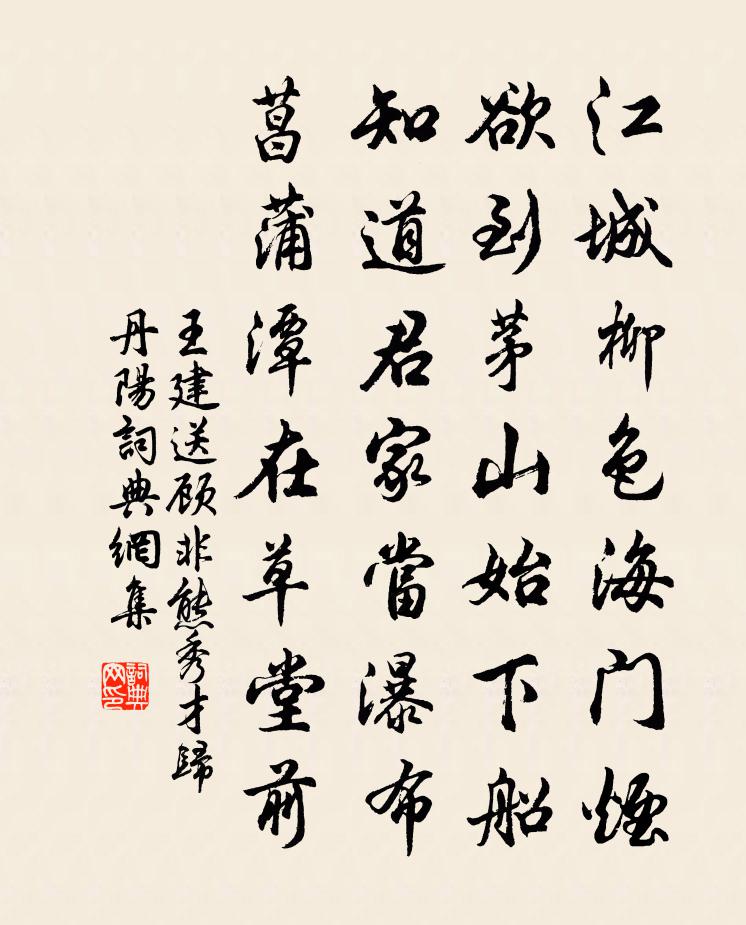 江城柳色海门煙
欲到茅山始下船
知道君家當瀑布
菖蒲潭在草堂前
王建送顾非熊秀才歸
丹陽詞典網集
詞典网印